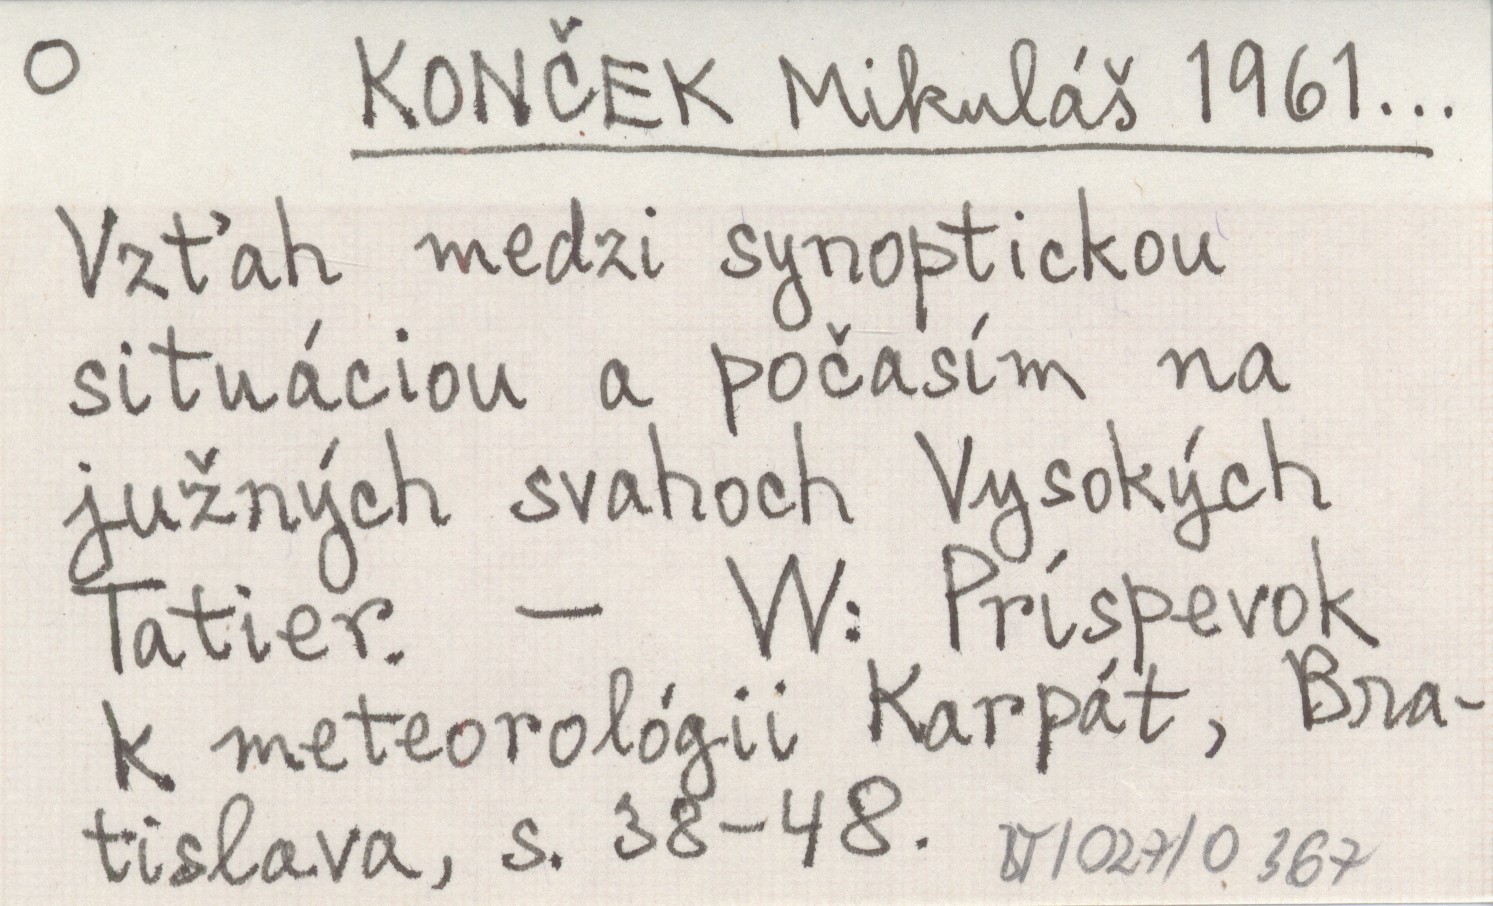 O KONČEK Mikuláš 1961...
Vzťah medzi synoptickou
situáciou a počasím na
južných svahoch Vysokých
Tatier. — W: Príspevok
k meteorológii Karpát, Bra-
tislava, s. 38-48.
367